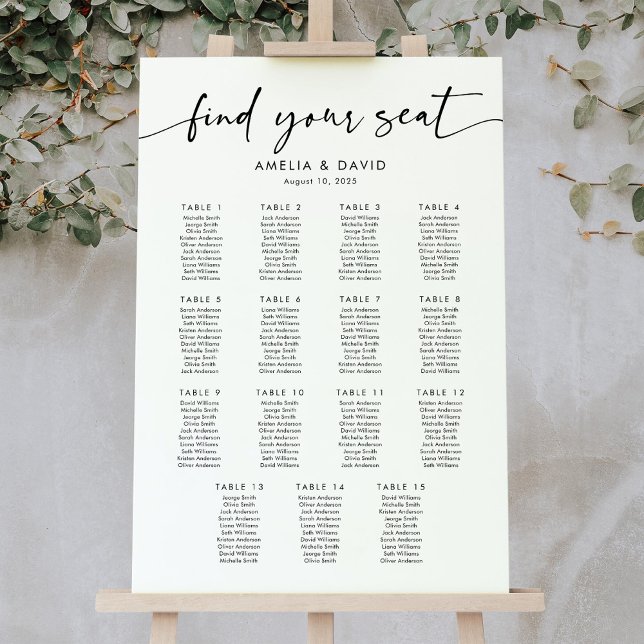 find your seat
AMELIA & DAVID
August 10, 2025
TABLE 1
Michelle Smith
Jeorge Smith
Olivia Smith
Kristen Anderson
Oliver Anderson
Jack Anderson
Sarah Anderson
Liana Williams
Seth Williams
David Williams
TABLE 2
Jack Anderson
Sarah Anderson
Liana Williams
Seth Williams
David Williams
Michelle Smith
Jeorge Smith
Olivia Smith
Kristen Anderson
Oliver Anderson
TABLE 3
David Williams
Michelle Smith
Jeorge Smith
Olivia Smith
Jack Anderson
Sarah Anderson
Liana Williams
Seth Williams
Kristen Anderson
Oliver Anderson
TABLE 4
Jack Anderson
Sarah Anderson
Liana Williams
Seth Williams
Kristen Anderson
Oliver Anderson
David Williams
Michelle Smith
Jeorge Smith
Olivia Smith
TABLE 5
Sarah Anderson
Liana Williams
Seth Williams
Kristen Anderson
Oliver Anderson
David Williams
Michelle Smith
Jeorge Smith
Olivia Smith
Jack Anderson
TABLE 6
Liana Williams
Seth Williams
Kristen Anderson
Oliver Anderson
David Williams
Michelle Smith
Jeorge Smith
Olivia Smith
Jack Anderson
Sarah Anderson
TABLE 7
Seth Williams
Kristen Anderson
Oliver Anderson
David Williams
Michelle Smith
Jeorge Smith
Olivia Smith
Jack Anderson
Sarah Anderson
Liana Williams
TABLE 8
Kristen Anderson
Oliver Anderson
David Williams
Michelle Smith
Jeorge Smith
Olivia Smith
Jack Anderson
Sarah Anderson
Liana Williams
Seth Williams
TABLE 9
David Williams
Michelle Smith
Jeorge Smith
Olivia Smith
Jack Anderson
Sarah Anderson
Liana Williams
Seth Williams
Kristen Anderson
Oliver Anderson
TABLE 10
Michelle Smith
Jeorge Smith
Olivia Smith
Jack Anderson
Sarah Anderson
Liana Williams
Seth Williams
Kristen Anderson
Oliver Anderson
David Williams
TABLE 11
Sarah Anderson
Liana Williams
Seth Williams
Kristen Anderson
Oliver Anderson
David Williams
Michelle Smith
Jeorge Smith
Olivia Smith
Jack Anderson
TABLE 12
Kristen Anderson
Oliver Anderson
David Williams
Michelle Smith
Jeorge Smith
Olivia Smith
Jack Anderson
Sarah Anderson
Liana Williams
Seth Williams
TABLE 13
Jeorge Smith
Olivia Smith
Jack Anderson
Sarah Anderson
Liana Williams
Seth Williams
Kristen Anderson
Oliver Anderson
David Williams
Michelle Smith
TABLE 14
Kristen Anderson
Oliver Anderson
Jack Anderson
Sarah Anderson
Liana Williams
Seth Williams
David Williams
Michelle Smith
Jeorge Smith
Olivia Smith
TABLE 15
David Williams
Michelle Smith
Kristen Anderson
Oliver Anderson
Jack Anderson
Sarah Anderson
Liana Williams
Seth Williams
Jeorge Smith
Olivia Smith